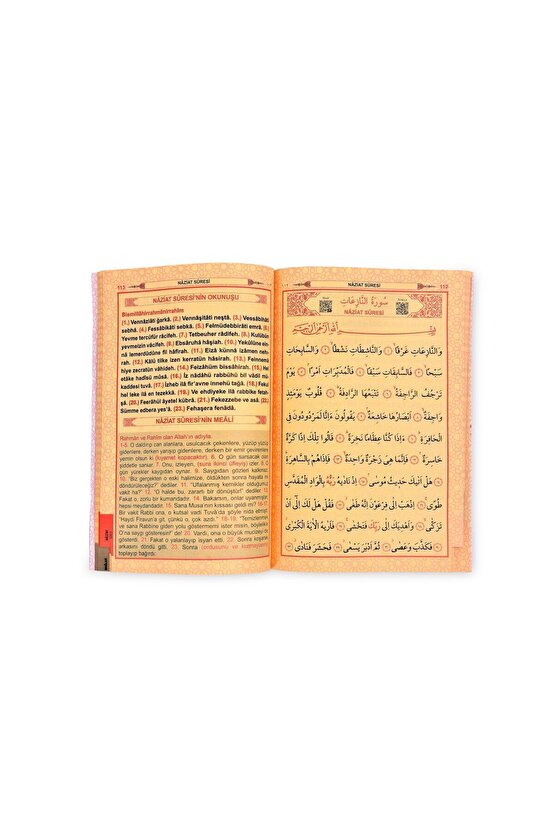 113
NÂZİAT SÛRESİ
NÂZİAT SÛRESİ'NİN OKUNUŞU
Bismillâhirrahmânirrahîm
(1.) Vennâziâti ğarkâ. (2.) Vennâşitâti neştâ. (3.) Vessâbihâti
sebhâ. (4.) Fessâbikâti sebkâ. (5.) Felmüdebbirâti emrâ. (6.)
Yevme tercüfür râcifeh. (7.) Tetbeuher râdifeh. (8.) Kulûbüy
yevmeizin vâcifeh. (9.) Ebsâruhâ hâşiah. (10.) Yekûlûne ein-
nâ lemerdûdûne fil hâfirah. (11.) Eizâ künnâ izâmen neh-
rah. (12.) Kâlû tilke izen kerratün hâsirah. (13.) Feinnemâ
hiye zecratün vâhideh. (14.) Feizâhüm bissâhirah. (15.) Hel
etâke hadîsü mûsâ. (16.) İz nâdâhü rabbühû bil vâdil mü-
kaddesi tuvâ. (17.) İzheb ilâ fir'avne innehû tağâ. (18.) Fekul
hel leke ilâ en tezekkâ. (19.) Ve ehdiyeke ilâ rabbike fetah-
şâ. (20.) Feerâhül âyetel kübrâ. (21.) Fekezzebe ve asâ. (22.)
Sümme edbera yes'â. (23.) Fehaşera fenâdâ.
NÂZİAT SÛRESİ'NİN MEÂLİ
Rahmân ve Rahîm olan Allah'ın adıyla.
1-5. O daldırıp can alanlara, usulcacık çekenlere, yüzüp yüzüp
gidenlere, derken yarışıp gidenlere, derken bir emir çevirenlere
yemin olsun ki (kıyamet kopacaktır). 6. O gün sarsacak olan
şiddetle sarsar. 7. Onu, izleyen, (sura ikinci üfleyiş) izler. 8. O
gün yürekler kaygıdan oynar. 9. Saygıdan gözleri kalkmaz.
10. "Biz gerçekten o eski halimize, öldükten sonra hayata mı
döndürüleceğiz?" dediler. 11. "Ufalanmış kemikler olduğumuz
vakit ha?" 12. "O halde bu, zararlı bir dönüştür!" dediler. 13.
Fakat o, zorlu bir kumandadır. 14. Bakarsın, onlar hep
hepsi meydandadır. 15. Sana Musa'nın kıssası geldi ya? 16-17.
Bir vakit Rabbi ona, o kutsal vadi Tuvâ'da şöyle nida etmişti:
"Haydi Firavun'a git, çünkü o, çok azdı." 18-19. "Temizlenmeye
ve sana Rabbine giden yolu göstermemi ister misin, böylelikle
O'na saygı gösterirsin" de! 20. Vardı, ona o büyük mucizeyi
gösterdi. 21. Fakat o yalanlayıp isyan etti. 22. Sonra koşarak
arkasını döndü gitti. 23. Sonra (ordusunu ve kavmini)
toplayıp bağırdı.
NÂZİAT SÛRESİ
112
سُورَةُ النَّازِعَاتِ
NÂZİAT SÛRESİ
بِسْمِ اللّٰهِ الرَّحْمٰنِ الرَّحِيمِ
وَالنَّازِعَاتِ غَرْقًاۙ ﴿١﴾ وَالنَّاشِطَاتِ نَشْطًاۙ ﴿٢﴾ وَالسَّابِحَاتِ
سَبْحًاۙ ﴿٣﴾ فَالسَّابِقَاتِ سَبْقًاۙ ﴿٤﴾ فَالْمُدَبِّرَاتِ اَمْرًاۢ ﴿٥﴾ يَوْمَ
تَرْجُفُ الرَّاجِفَةُۙ ﴿٦﴾ تَتْبَعُهَا الرَّادِفَةُۜ ﴿٧﴾ قُلُوبٌ يَوْمَئِذٍ
وَاجِفَةٌۙ ﴿٨﴾ اَبْصَارُهَا خَاشِعَةٌۢ ﴿٩﴾ يَقُولُونَ ءَاِنَّا لَمَرْدُودُونَ فِي
الْحَافِرَةِۜ ﴿١٠﴾ ءَاِذَا كُنَّا عِظَامًا نَخِرَةًۜ ﴿١١﴾ قَالُوا تِلْكَ اِذًا كَرَّةٌ
خَاسِرَةٌۢ ﴿١٢﴾ فَاِنَّمَا هِيَ زَجْرَةٌ وَاحِدَةٌۙ ﴿١٣﴾ فَاِذَا هُمْ بِالسَّاهِرَةِۜ
﴿١٤﴾ هَلْ اَتٰيكَ حَدِيثُ مُوسٰىۢ ﴿١٥﴾ اِذْ نَادٰيهُ رَبُّهُ بِالْوَادِ الْمُقَدَّسِ
طُوًىۚ ﴿١٦﴾ اِذْهَبْ اِلٰى فِرْعَوْنَ اِنَّهُ طَغٰىۘ ﴿١٧﴾ فَقُلْ هَلْ لَكَ اِلٰٓى اَنْ
تَزَكّٰىۙ ﴿١٨﴾ وَاَهْدِيَكَ اِلٰى رَبِّكَ فَتَخْشٰىۚ ﴿١٩﴾ فَاَرٰيهُ الْاٰيَةَ الْكُبْرٰىۘ
﴿٢٠﴾ فَكَذَّبَ وَعَصٰىۘ ﴿٢١﴾ ثُمَّ اَدْبَرَ يَسْعٰىۘ ﴿٢٢﴾ فَحَشَرَ فَنَادٰىۘ ﴿٢٣﴾